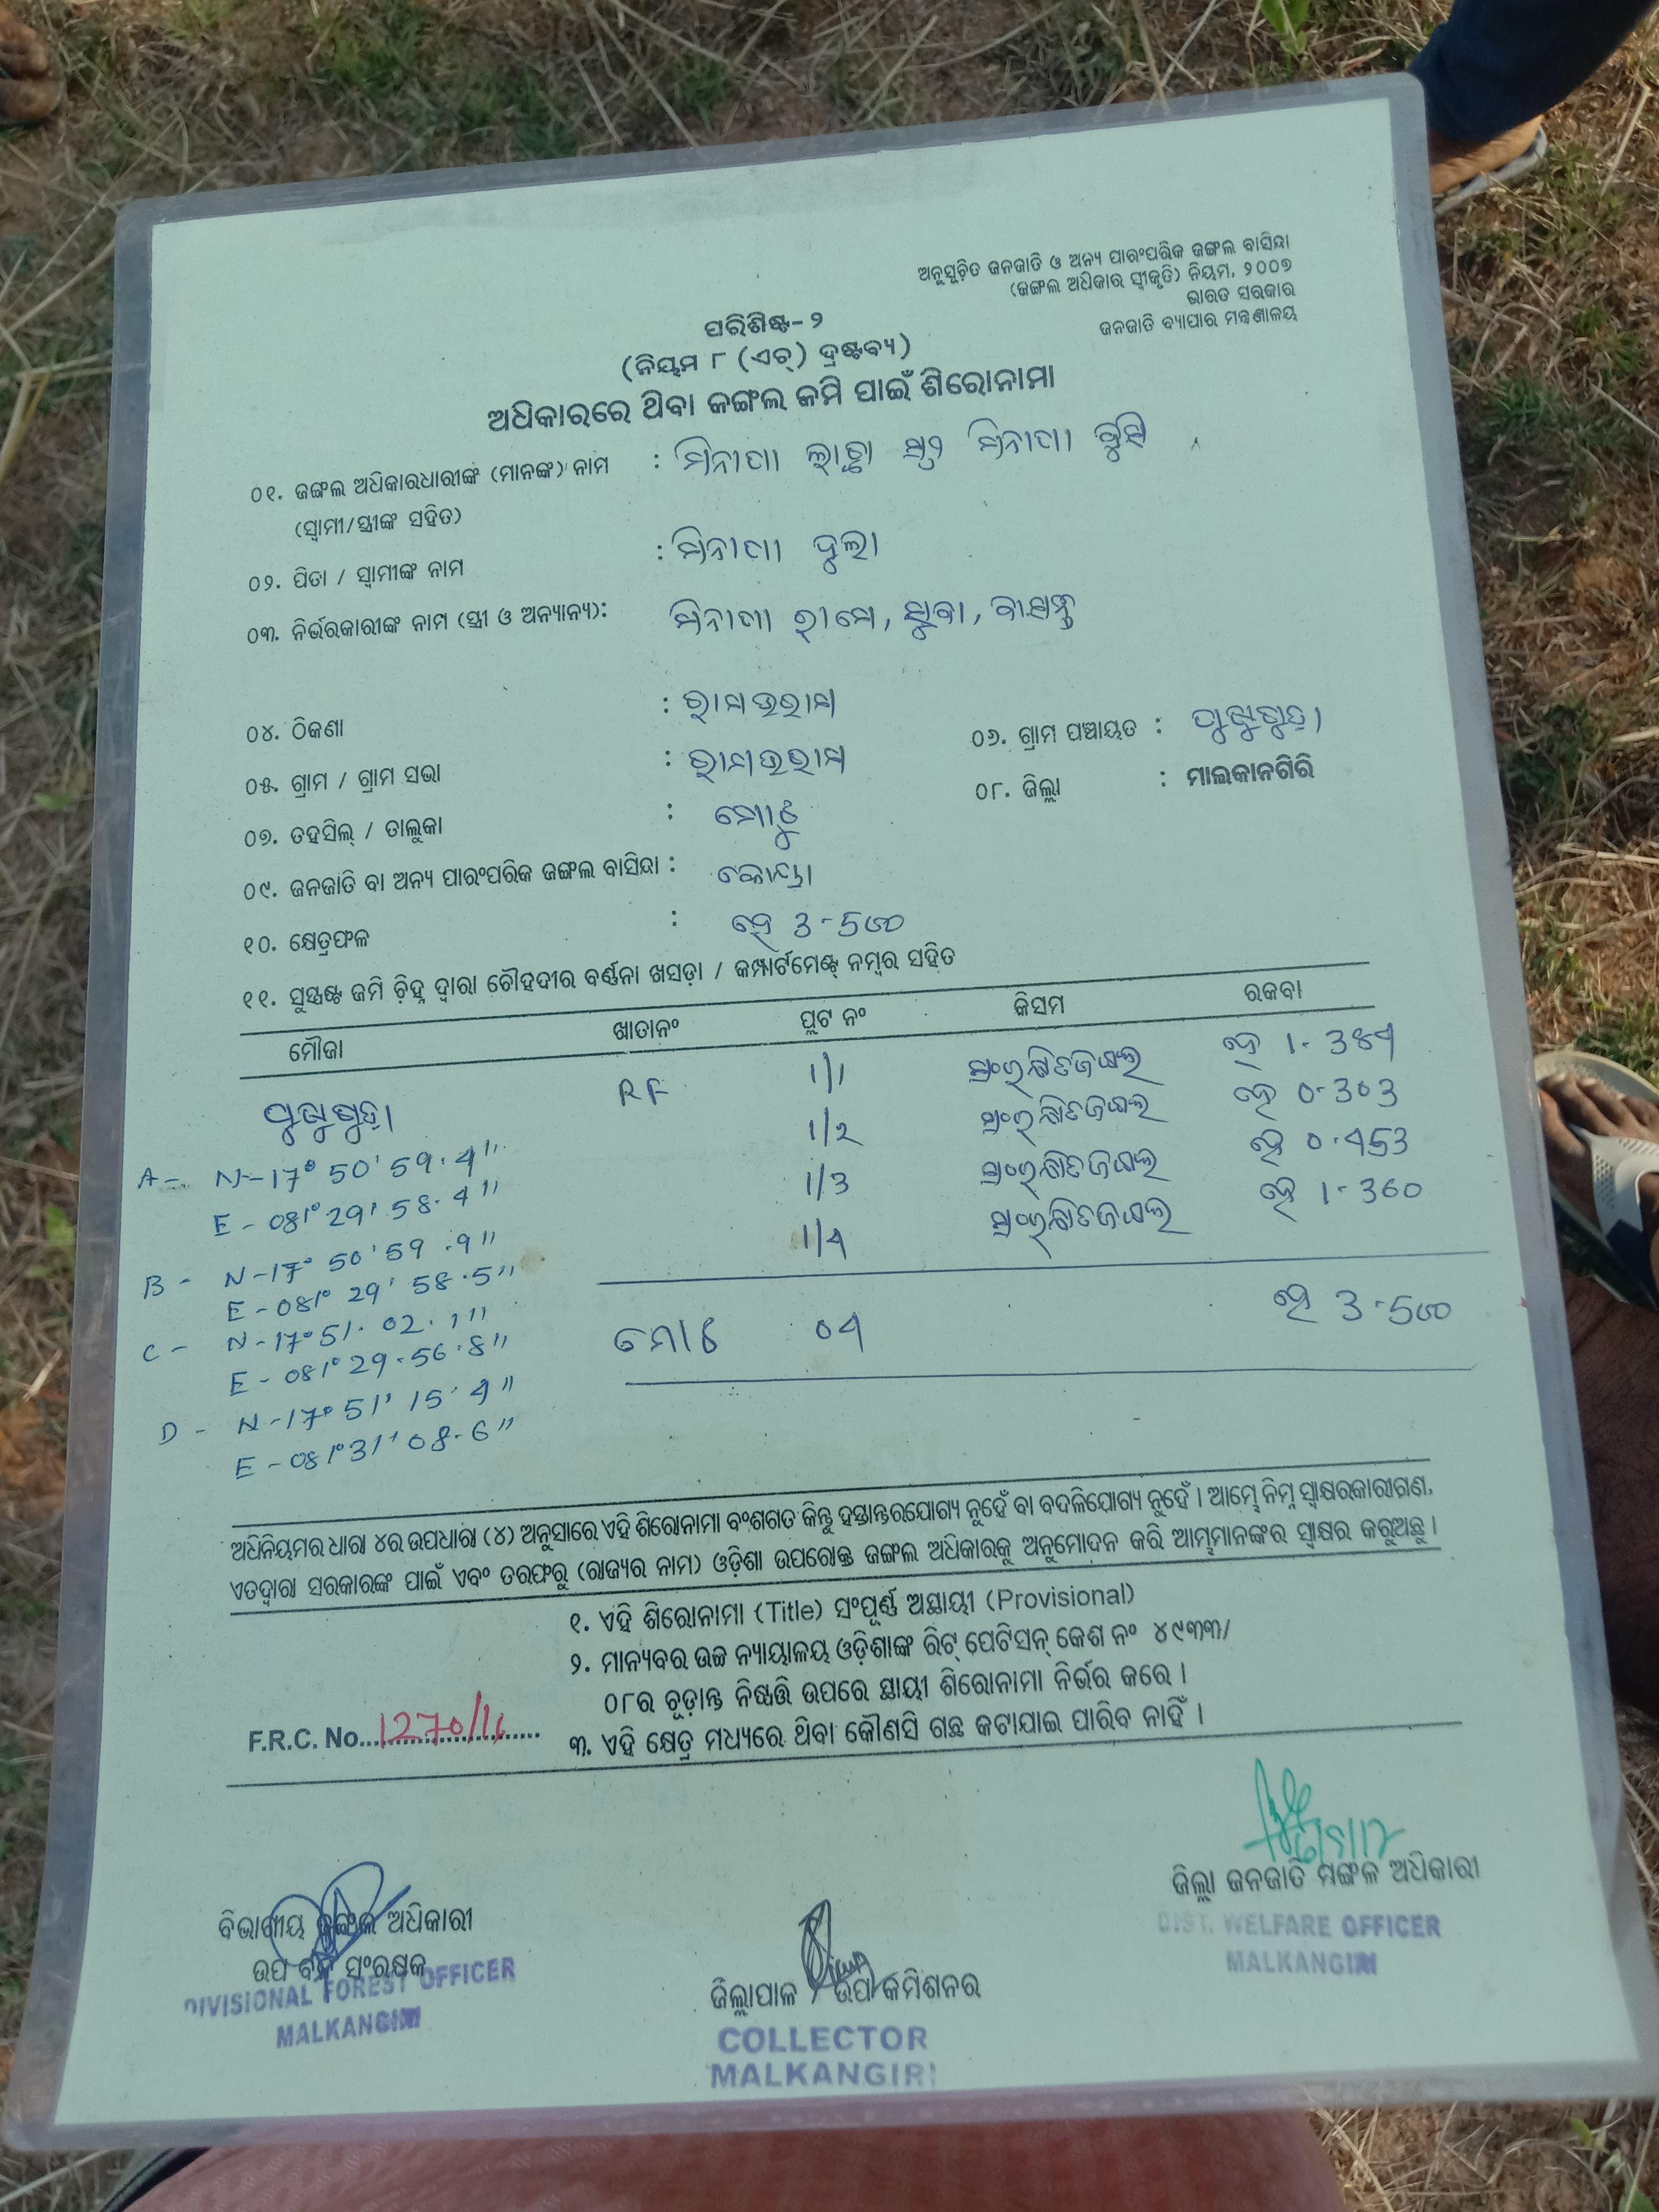 ଅନୁସୂଚିତ ଜନଜାତି ଓ ଅନ୍ୟ ପାରଂପରିକ ଜଙ୍ଗଲ ବାସିନ୍ଦା
(ଜଙ୍ଗଲ ଅଧିକାର ସ୍ୱୀକୃତି) ନିୟମ, ୨୦୦୭
ଭାରତ ସରକାର
ଜନଜାତି ବ୍ୟାପାର ମନ୍ତ୍ରଣାଳୟ
ପରିଶିଷ୍ଟ-୨
(ନିୟମ ୮ (ଏଚ୍) ଦ୍ରଷ୍ଟବ୍ୟ)
ଅଧିକାରରେ ଥିବା ଜଙ୍ଗଲ ଜମି ପାଇଁ ଶିରୋନାମା
୦୧. ଜଙ୍ଗଲ ଅଧିକାରଧାରୀଙ୍କ (ମାନଙ୍କ) ନାମ :
(ସ୍ୱାମୀ/ସ୍ତ୍ରୀଙ୍କ ସହିତ)
୦୨. ପିତା / ସ୍ୱାମୀଙ୍କ ନାମ :
୦୩. ନିର୍ଭରକାରୀଙ୍କ ନାମ (ସ୍ତ୍ରୀ ଓ ଅନ୍ୟାନ୍ୟ):
୦୪. ଠିକଣା :
୦୫. ଗ୍ରାମ / ଗ୍ରାମ ସଭା :
୦୬. ଗ୍ରାମ ପଞ୍ଚାୟତ :
୦୭. ତହସିଲ୍ / ତାଲୁକା : ମୋଟୁ
୦୮. ଜିଲ୍ଲା : ମାଲକାନଗିରି
୦୯. ଜନଜାତି ବା ଅନ୍ୟ ପାରଂପରିକ ଜଙ୍ଗଲ ବାସିନ୍ଦା : କୋୟା
୧୦. କ୍ଷେତ୍ରଫଳ : ହେ 3-500
୧୧. ସୁସ୍ପଷ୍ଟ ଜମି ଚିହ୍ନ ଦ୍ୱାରା ଚୌହଦୀର ବର୍ଣ୍ଣନା ଖସଡ଼ା / କମ୍ପାର୍ଟମେଣ୍ଟ ନମ୍ବର ସହିତ
ମୌଜା ଖାତାନଂ ପ୍ଲଟ ନଂ କିସମ ରକବା
RF 1/1 ସଂରକ୍ଷିତ ଜଙ୍ଗଲ ହେ 1-384
1/2 ସଂରକ୍ଷିତ ଜଙ୍ଗଲ ହେ 0-303
1/3 ସଂରକ୍ଷିତ ଜଙ୍ଗଲ ହେ 0-453
1/4 ସଂରକ୍ଷିତ ଜଙ୍ଗଲ ହେ 1-360
A- N-17° 50' 59.4"
E - 081° 29' 58.4"
B - N-17° 50' 59.9"
E - 081° 29' 58.5"
C - N-17° 51. 02.1"
E - 081° 29.56.8"
D - N-17° 51' 15.4"
E - 081° 31' 08.6"
ମୋଟ 04 ହେ 3-500
ଅଧିନିୟମର ଧାରା ୪ର ଉପଧାରା (୪) ଅନୁସାରେ ଏହି ଶିରୋନାମା ବଂଶଗତ କିନ୍ତୁ ହସ୍ତାନ୍ତରଯୋଗ୍ୟ ନୁହେଁ ବା ବଦଳିଯୋଗ୍ୟ ନୁହେଁ । ଆମ୍ଭେ ନିମ୍ନ ସ୍ୱାକ୍ଷରକାରୀଗଣ,
ଏତଦ୍ୱାରା ସରକାରଙ୍କ ପାଇଁ ଏବଂ ତରଫରୁ (ରାଜ୍ୟର ନାମ) ଓଡ଼ିଶା ଉପରୋକ୍ତ ଜଙ୍ଗଲ ଅଧିକାରକୁ ଅନୁମୋଦନ କରି ଆମ୍ଭମାନଙ୍କର ସ୍ୱାକ୍ଷର କରୁଅଛୁ ।
୧. ଏହି ଶିରୋନାମା (Title) ସଂପୂର୍ଣ୍ଣ ଅସ୍ଥାୟୀ (Provisional)
୨. ମାନ୍ୟବର ଉଚ୍ଚ ନ୍ୟାୟାଳୟ ଓଡ଼ିଶାଙ୍କ ରିଟ୍ ପେଟିସନ୍ କେଶ ନଂ ୪୯୩୩/
୦୮ର ଚୂଡ଼ାନ୍ତ ନିଷ୍ପତ୍ତି ଉପରେ ସ୍ଥାୟୀ ଶିରୋନାମା ନିର୍ଭର କରେ ।
୩. ଏହି କ୍ଷେତ୍ର ମଧ୍ୟରେ ଥିବା କୌଣସି ଗଛ କଟାଯାଇ ପାରିବ ନାହିଁ ।
F.R.C. No. 1270/16
ବିଭାଗୀୟ ଜଙ୍ଗଲ ଅଧିକାରୀ
ଉପ ବନ ସଂରକ୍ଷକ
DIVISIONAL FOREST OFFICER
MALKANGIRI
ଜିଲ୍ଲାପାଳ / ଉପ କମିଶନର
COLLECTOR
MALKANGIRI
ଜିଲ୍ଲା ଜନଜାତି ମଙ୍ଗଳ ଅଧିକାରୀ
DIST. WELFARE OFFICER
MALKANGIRI